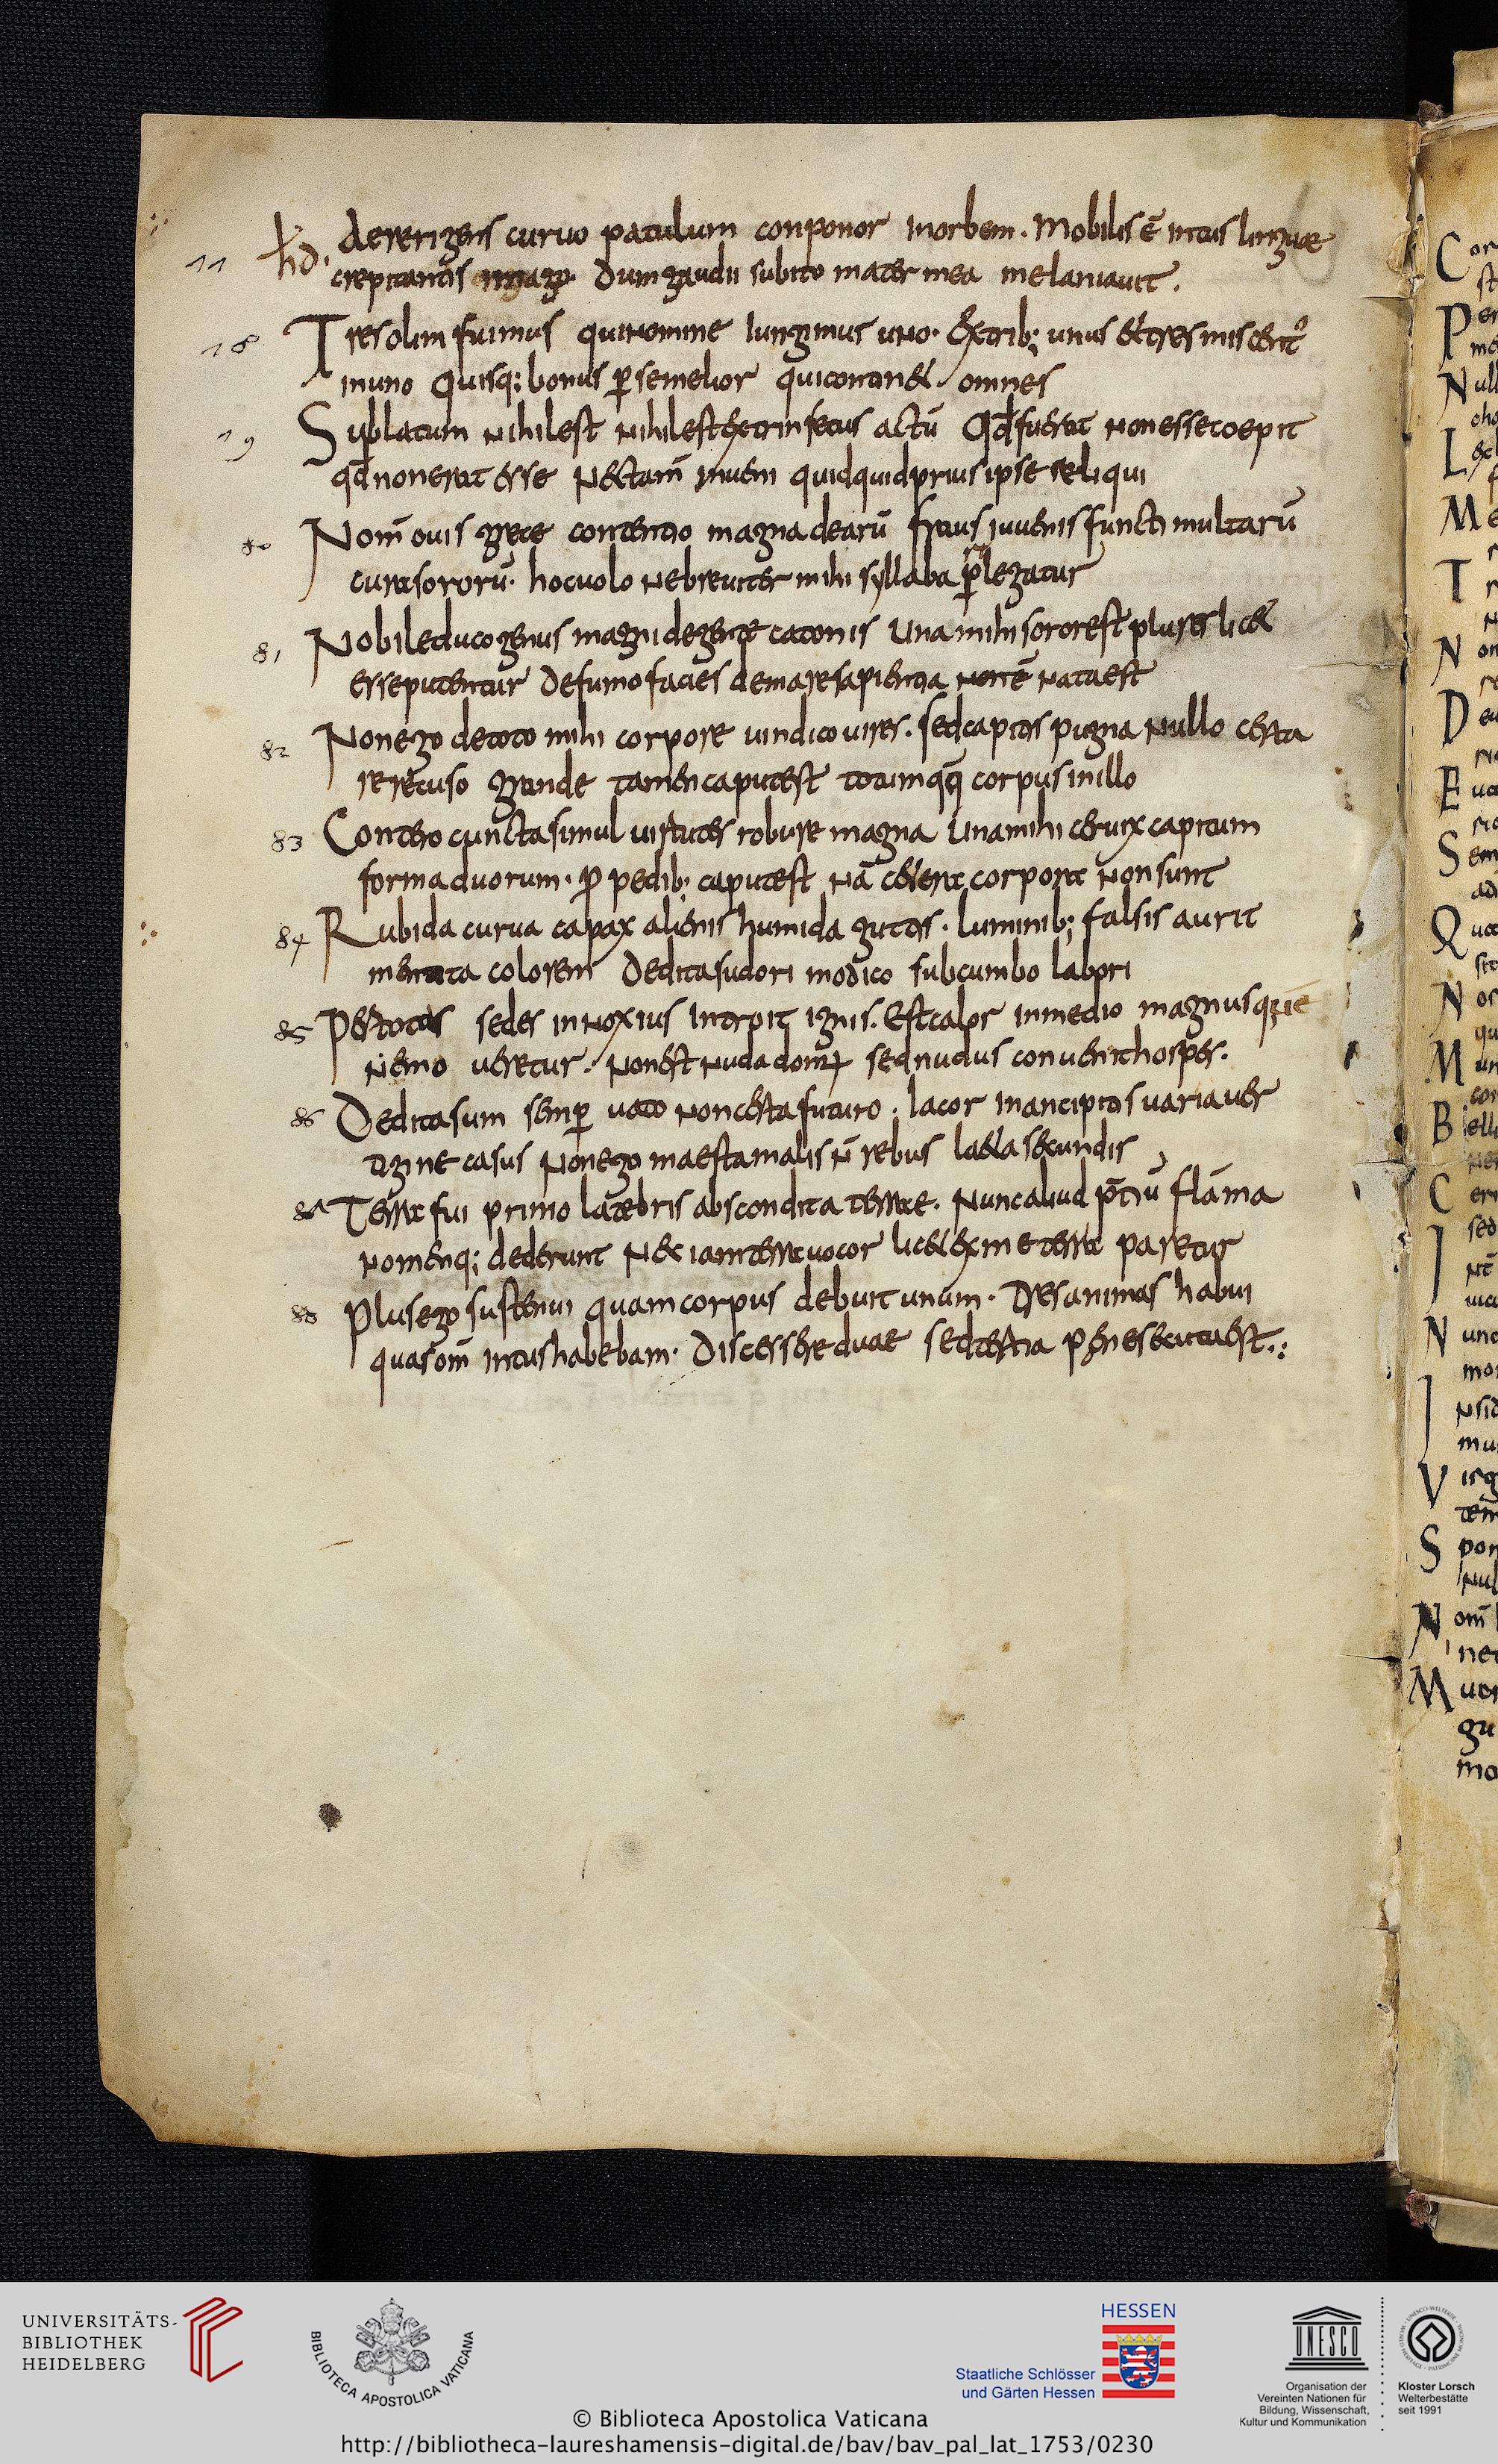 hd. Aere rigens curuo patulum conponor inorbem. Mobilis ē intus linguae
11 crepitantis Dum gaudii subito mater mea melaniauit.
18 Tres olim fuimus quinomine iungimus uno. Extrib; unus & tres miscent᷑
inuno Quisq; bonus ꝑse melior quicontin&. omnes
19 Sublatum nihilest nihilest extrinsecus actū Qđ fuerat nonessecoepit
qđ nonerat esse Nec tam̄ inueni quidquid prius ipse reliqui
80 Nom̄ ouis grece contentio magna dearū fraus iuuenis functi multarū
cura sororū. hocuolo nebreuiter mihi syllaba ꝑlegatur
81 Nobileduco genus magni degente catonis Una mihi sororest plures lic&
esseputentur Defumo facies demare sapientia nata est
82 Nonego detoto mihi corpore uindico uires. sedcapitis pugna Nullo certa
rerecuso Grande tamen caput est totumq;q; corpusinillo
83 Contero cuncta simul uirtutes robure magna Unamihi ceruix capitum
forma duorum. ꝓ pedib; caput est Nā c&era corpora Non sunt
84 Rubida curua capax alienis humida guttis. luminib; falsis aurit
mentita colorem Dedita sudori modico subcumbo labori
85 Pertotas sedes innoxius introit ignis. Est calor inmedio magnus
Nemo ueretur. Nonest nuda domꝰ sed nudus conuenit hospes.
86 Dedita sum semꝑ uoto non certa futuro. Iacor inancipitis uaria uer
tigine casus Nonego maesta malis n̄ rebus l&a secundis
Terra fui primo latebris abscondita terrae. Nunc aliud p̄tiū flāma
nomenq; dederunt Nec iam terra uocor lic& ex me terra paretur
88 Plusego sustenui quamcorpus debuit unum. Tres animas habui
quas om̄ intus habebam. Discessere duae sed tertia pene secuta est.
UNIVERSITÄTS-
BIBLIOTHEK
HEIDELBERG
BIBLIOTECA APOSTOLICA VATICANA
HESSEN
Staatliche Schlösser
und Gärten Hessen
UNESCO
Organisation der
Vereinten Nationen für
Bildung, Wissenschaft,
Kultur und Kommunikation
Kloster Lorsch
Welterbestätte
seit 1991
© Biblioteca Apostolica Vaticana
http://bibliotheca-laureshamensis-digital.de/bav/bav_pal_lat_1753/0230